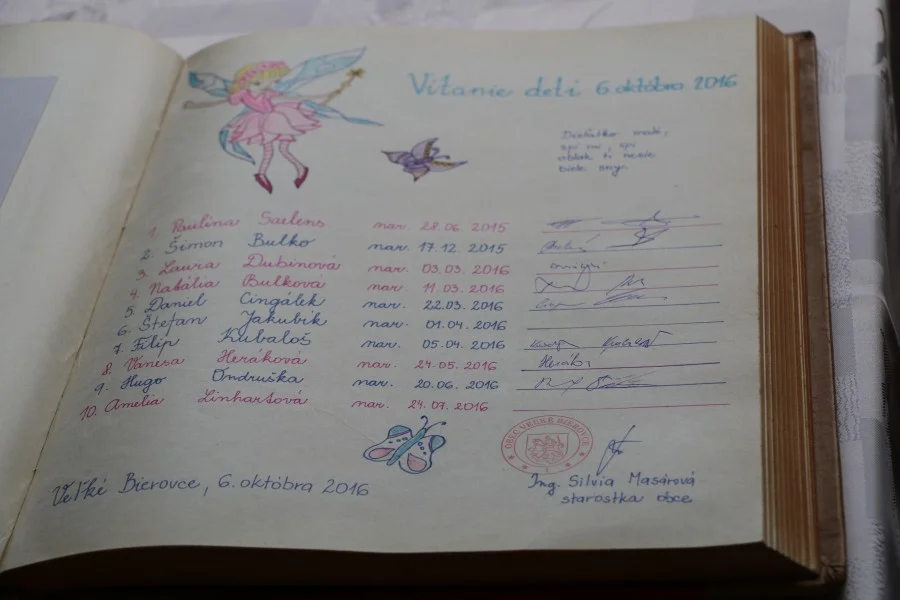 Vítanie detí 6 októbra 2016
Dieťatko malé,
spi mi, spi
oblak ti nesie
biele sny.
1. Paulína Saelens nar. 28.06.2015
2. Šimon Bulko nar. 17.12.2015
3. Laura Dubinová nar. 03.03.2016
4. Natália Bulková nar. 11.03.2016
5. Daniel Cingálek nar. 22.03.2016
6. Štefan Jakubík nar. 01.04.2016
7. Filip Kubaloš nar. 05.04.2016
8. Vanesa Heráková nar. 24.05.2016
9. Hugo Ondruška nar. 20.06.2016
10. Amelia Linhartová nar. 24.07.2016
OBEC VEĽKÉ BIEROVCE
Veľké Bierovce, 6. októbra 2016
Ing. Silvia Masárová
starostka obce